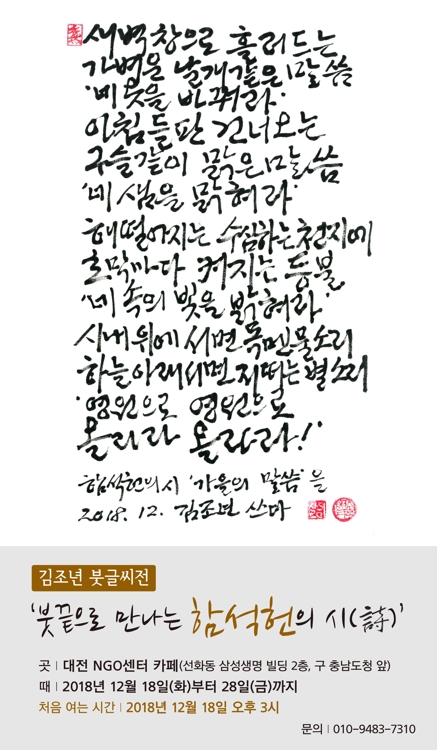 새벽 창으로 흘러드는
가벼운 날개같은 말씀
'네 옷을 바꿔라'
아침 들판 건너오는
구슬같이 맑은 말씀
'네 샘을 맑혀라'
해 떨어지는 수심하는 천지에
흐막마다 켜지는 등불
'네 속의 빛을 밝혀라'
시내 위에 서면 목멘 물소리
하늘 아래 서면 지떡는 별소리
'영원으로 영원으로
올라라 올라라!'
함석헌의 시 '가을의 말씀'을
2018. 12. 김조년 쓰다
김조년 붓글씨전
'붓끝으로 만나는 함석헌의 시(詩)'
곳 | 대전 NGO센터 카페(선화동 삼성생명 빌딩 2층, 구 충남도청 앞)
때 | 2018년 12월 18일(화)부터 28일(금)까지
처음 여는 시간 | 2018년 12월 18일 오후 3시
문의 | 010-9483-7310